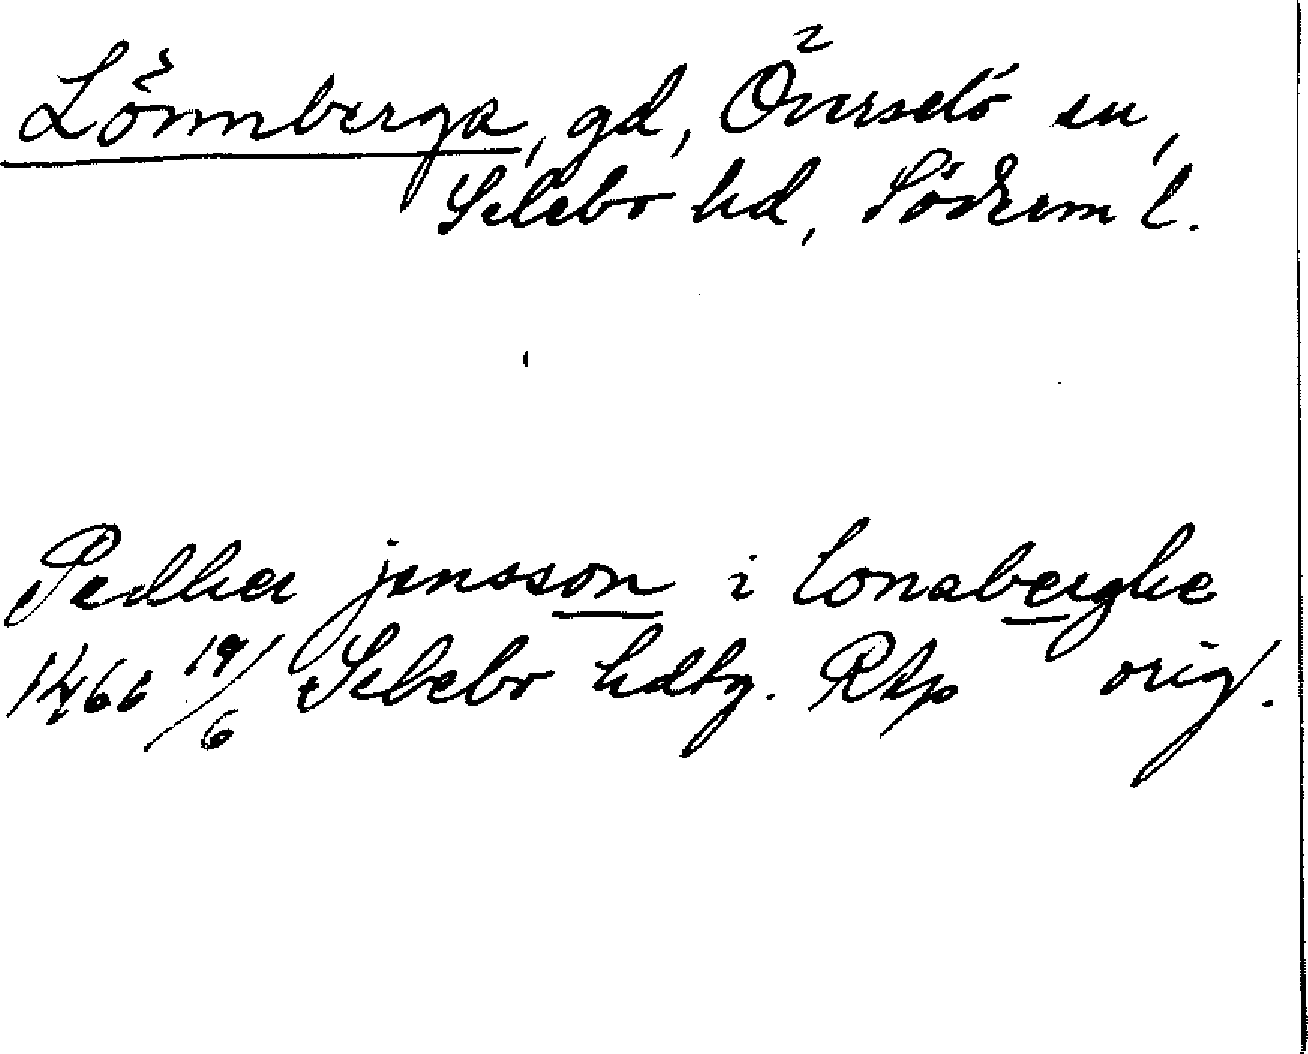 Lönnberga, gd, Överselö sn,
Selebo hd, Söderm l.
Pedher jonsson i lonaberghe
1466 19/6 Selebo hdtg. Rtp orig.